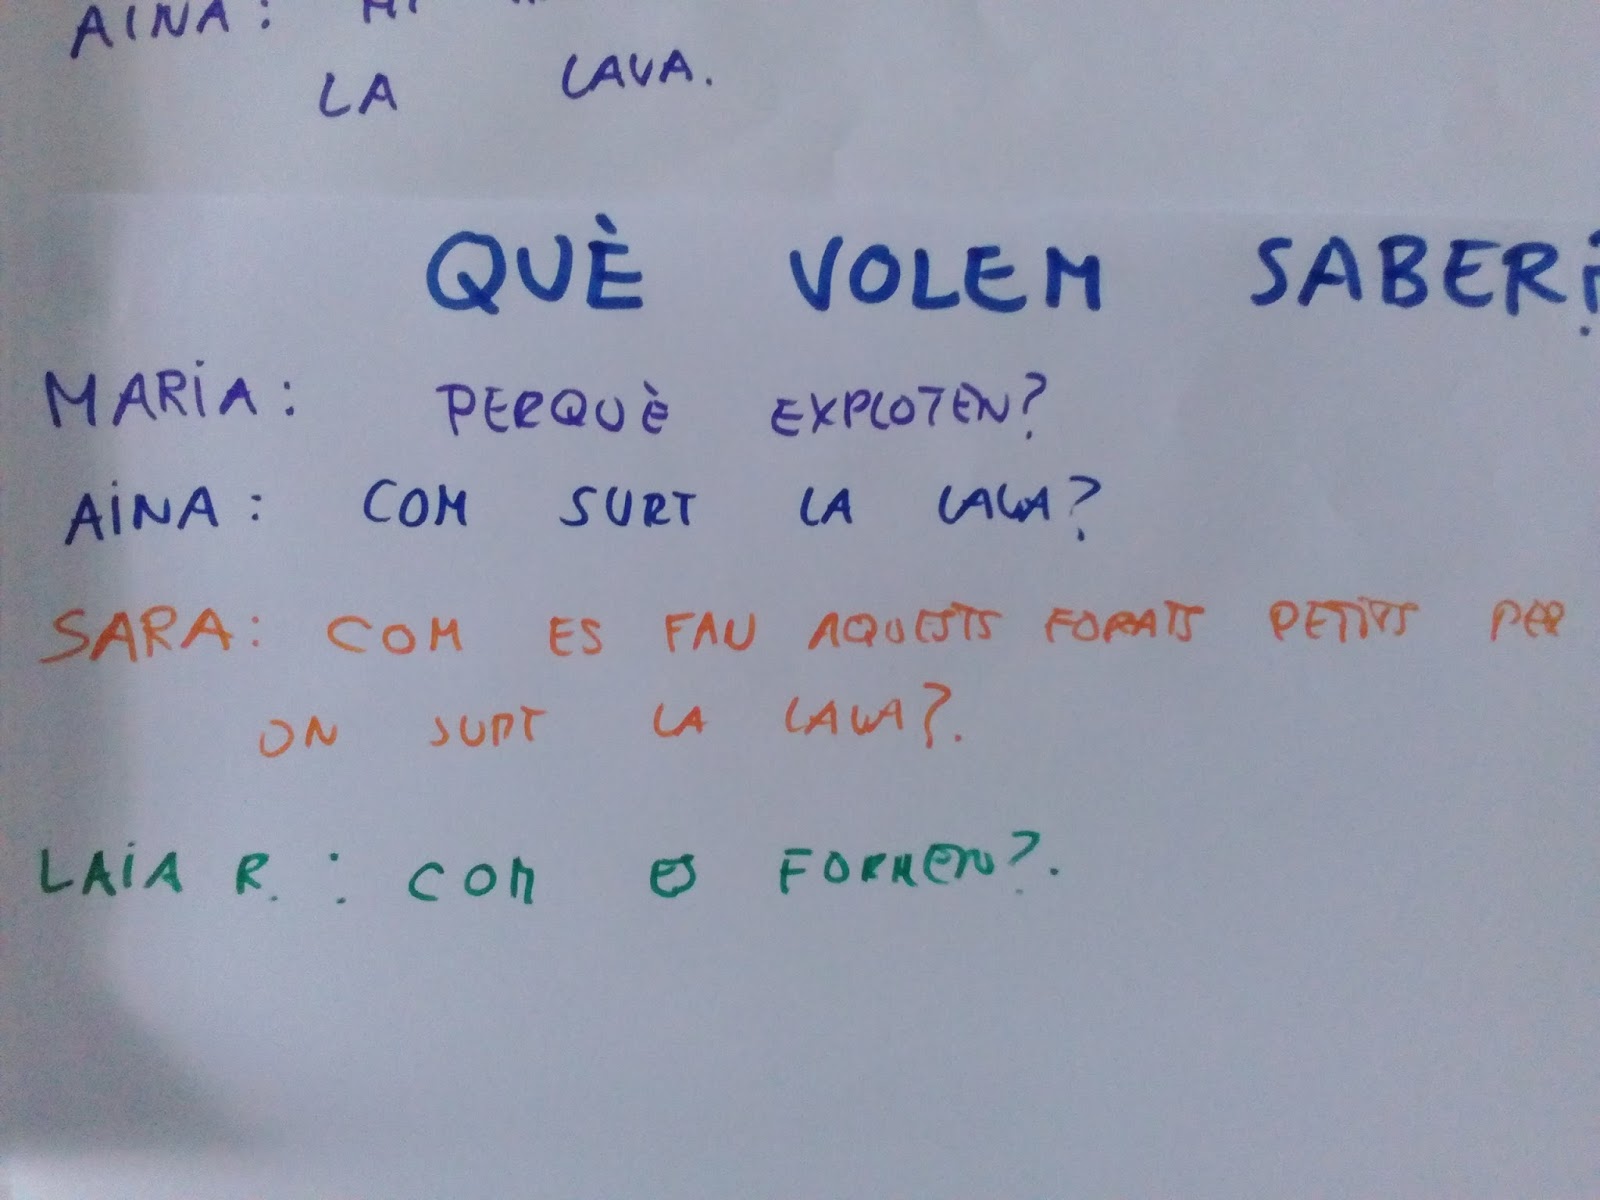 AINA:
LA LAVA.
QUÈ VOLEM SABER?
MARIA: PERQUÈ EXPLOTEN?
AINA: COM SURT LA LAVA?
SARA: COM ES FAN AQUESTS FORATS PETITS PER
ON SURT LA LAVA?.
LAIA R.: COM ES FORMEN?.